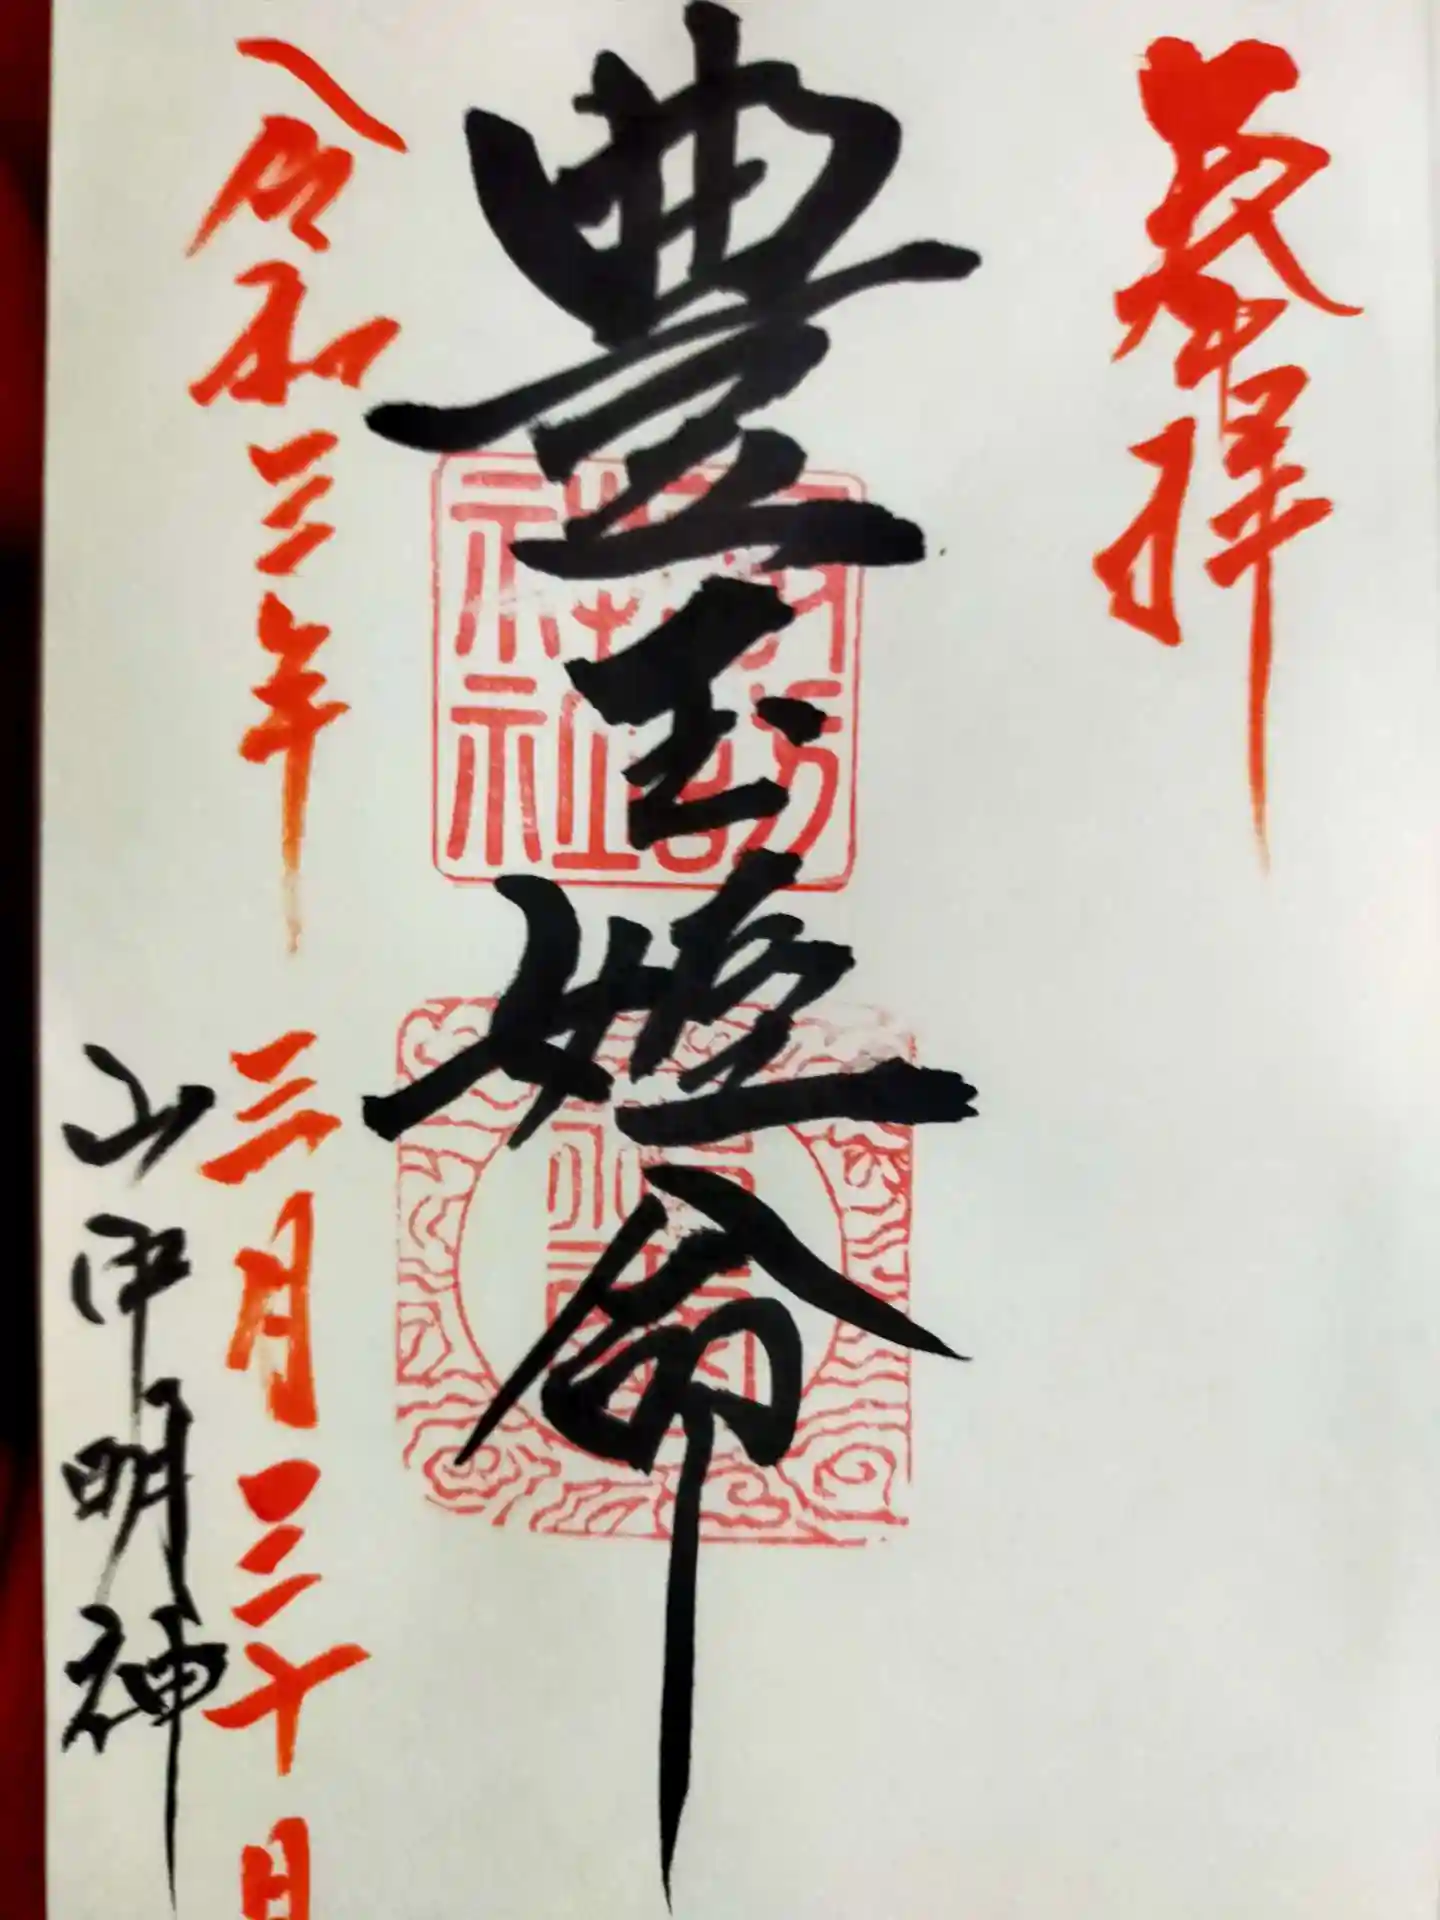 奉拝
豊玉姫命
諏訪神社
令和三年 三月三十日
山中明神